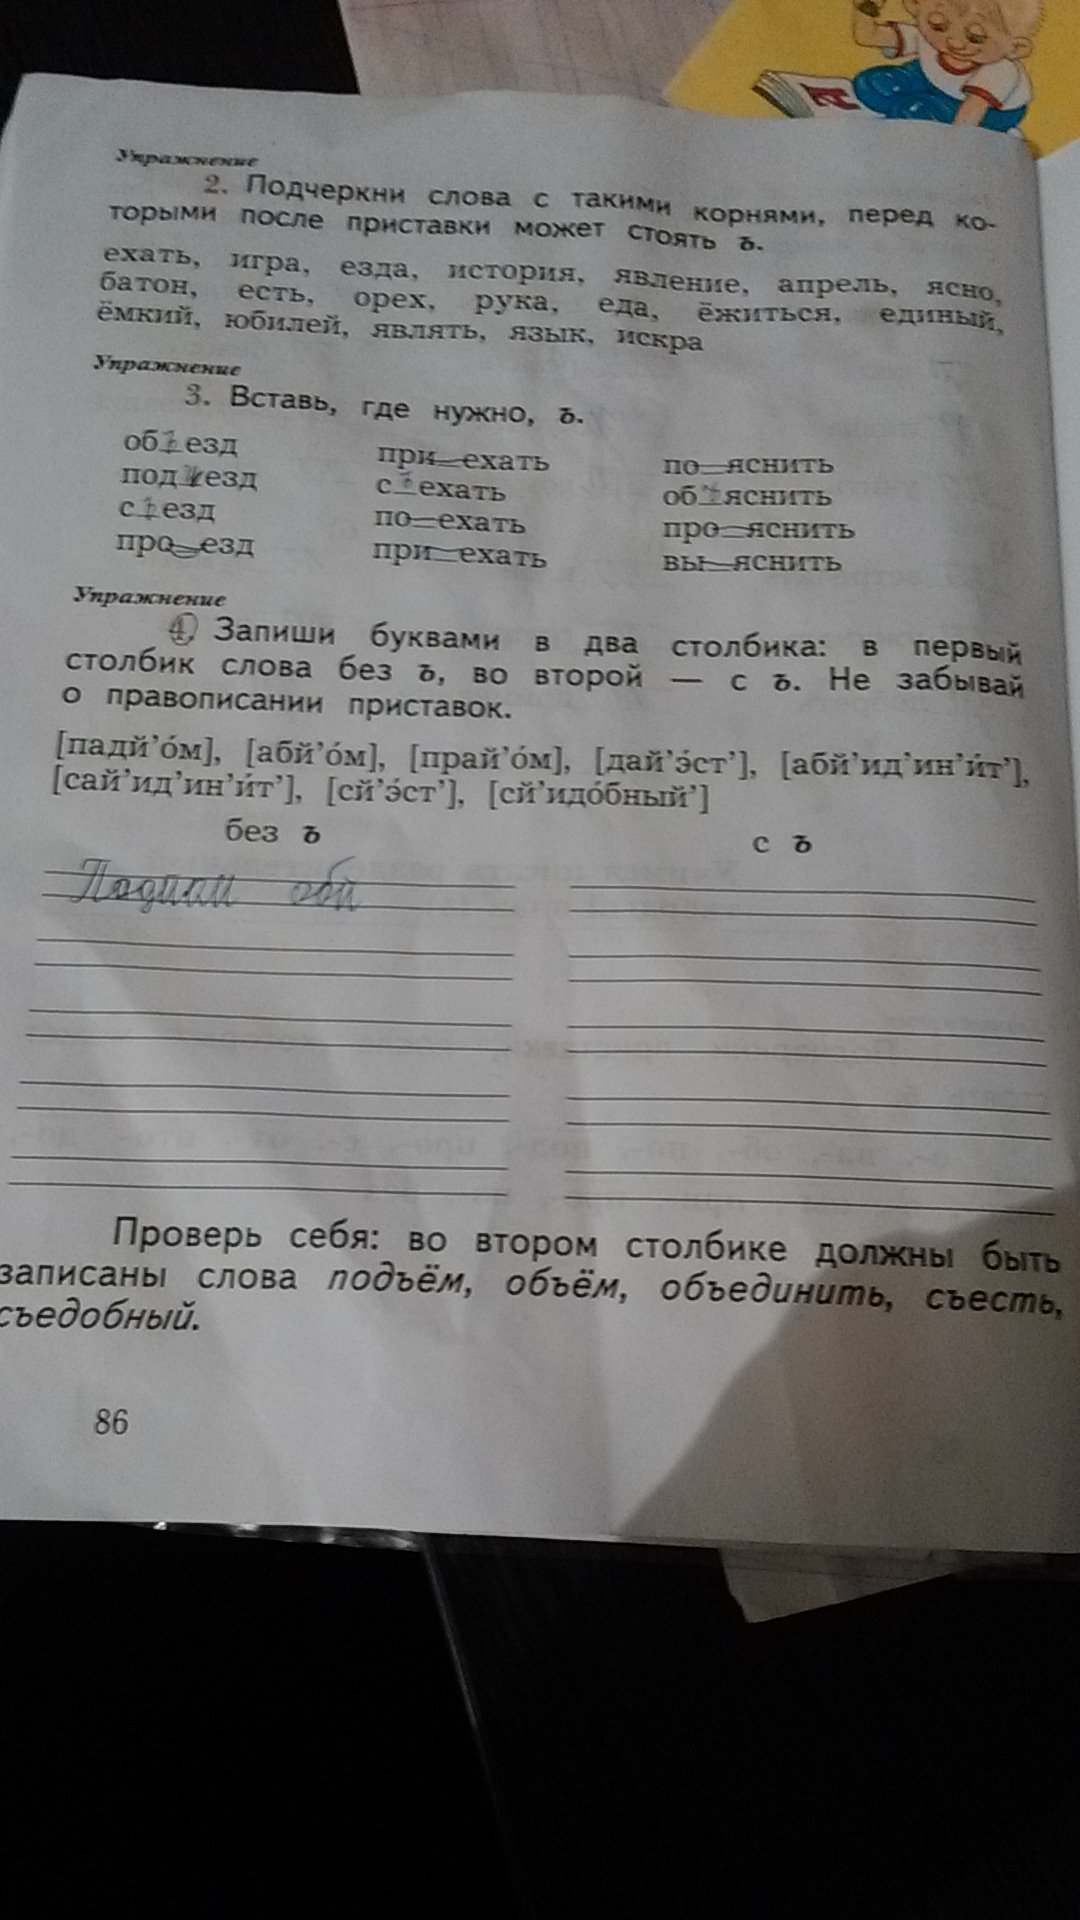 Упражнение
2. Подчеркни слова с такими корнями, перед ко-
торыми после приставки может стоять ъ.
ехать, игра, езда, история, явление, апрель, ясно,
батон, есть, орех, рука, еда, ёжиться, единый,
ёмкий, юбилей, являть, язык, искра
Упражнение
3. Вставь, где нужно, ъ.
объезд при_ехать по_яснить
подъезд съехать объяснить
съезд по_ехать про_яснить
про_езд при_ехать вы_яснить
Упражнение
4. Запиши буквами в два столбика: в первый
столбик слова без ъ, во второй — с ъ. Не забывай
о правописании приставок.
[падй’о́м], [абй’о́м], [прай’о́м], [дай’э́ст’], [абй’ид’ин’и́т’],
[сай’ид’ин’и́т’], [сй’э́ст’], [сй’идо́бный’]
без ъ с ъ
обй
Проверь себя: во втором столбике должны быть
записаны слова подъём, объём, объединить, съесть,
съедобный.
86